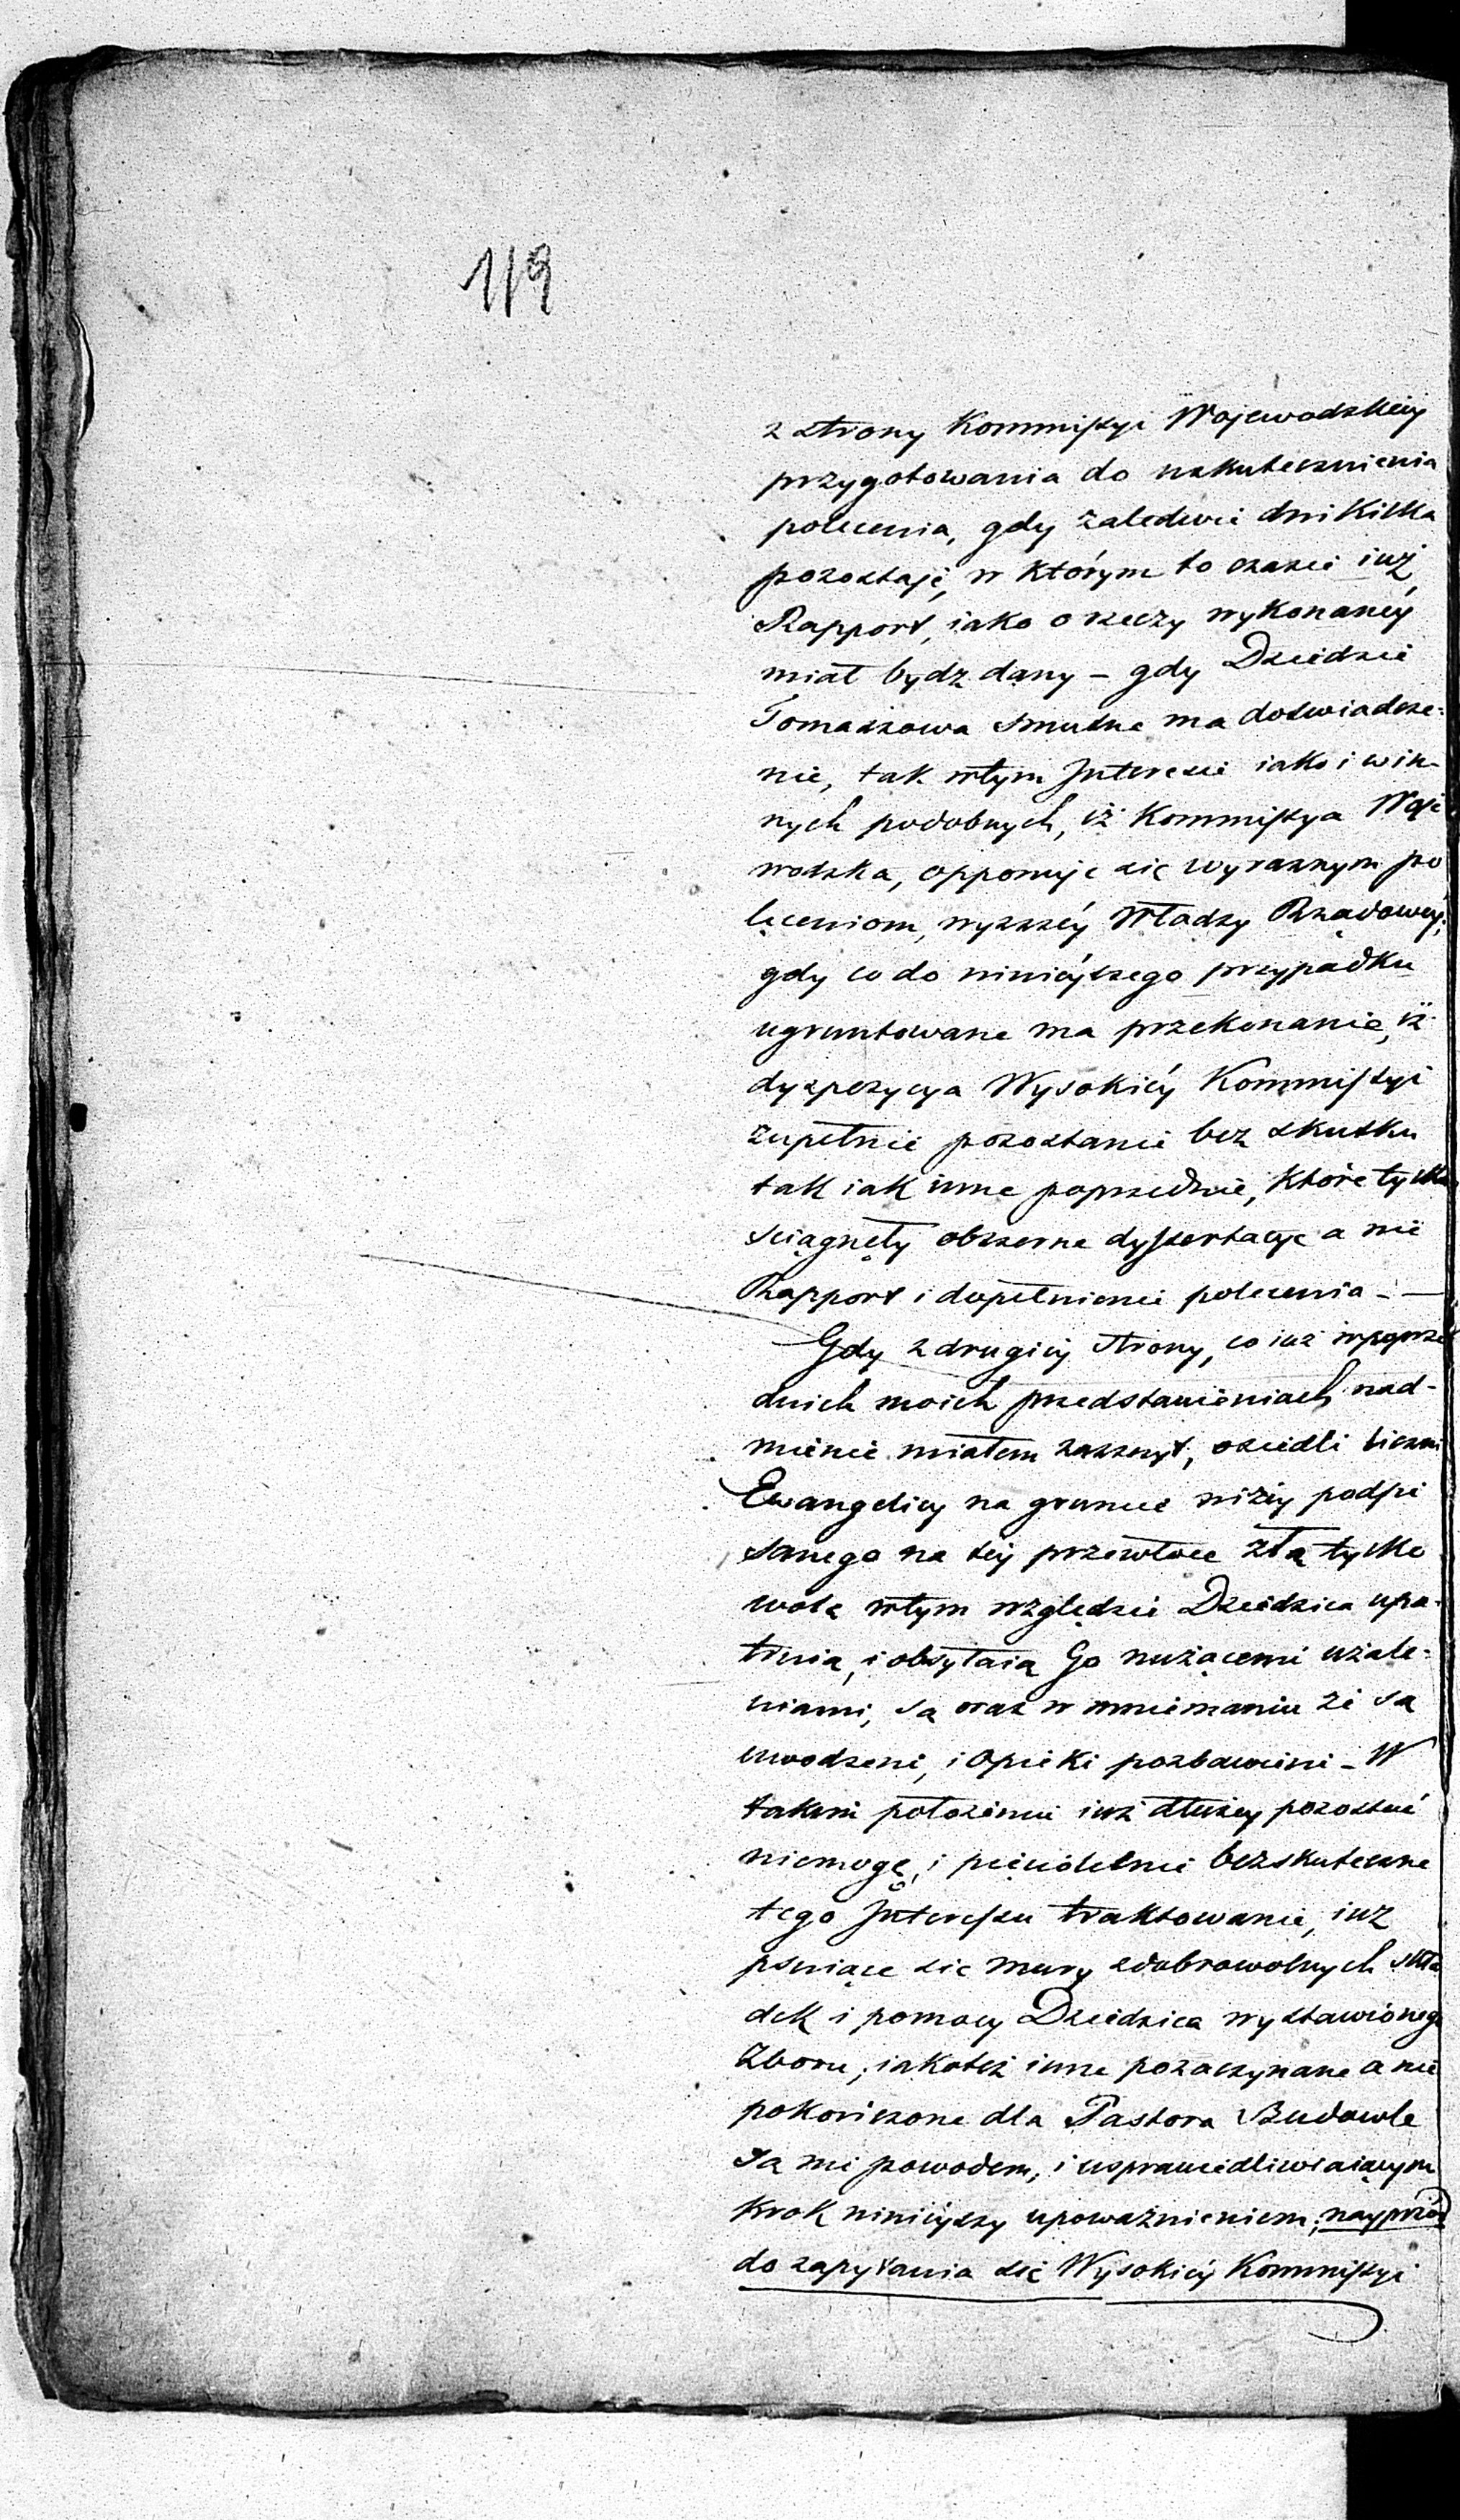 119
z strony Kommissyi Wojewodzkiey
przygotowania do uskutecznienia
polecenia, gdy zaledwie dni kilka
pozostaje, w którym to czasie iuż
Rapport, iako o rzeczy wykonaney
miał bydz dany – gdy Dziedzic
Tomaszowa smutne ma doświadcze-
nie, tak w tym Interesie iako i w in-
nych podobnych, iż Kommissya Woje
wodzka, opponuje się wyraznym po
leceniom, wyzszey Władzy Rządowey;
gdy co do ninieyszego przypadku
ugruntowane ma przekonanie, iż
dyspozycya Wysokiey Kommissyi
zupełnie pozostanie bez skutku
tak iak inne poprzednie, które tylko
sciągnęły obszerne dyssertacye a nie
Rapport i dopełnienie polecenia. —
Gdy z drugiey strony, co iuż w poprze
dnich moich przedstawieniach nad-
mienic miałem zaszczyt, osiedli liczni
Ewangelicy na gruncie niżey podpi
sanego na tey przewłoce złą tylko
wolę w tym względzie Dziedzica upa-
truią, i obsyłaią Go nużącemi użale-
niami, są oraz w mniemaniu że są
uwodzeni, i opieki pozbawieni – W
takim położeniu iuż dłużey pozostać
niemogę, i pięcioletnie bezskuteczne
tego Interessu traktowanie, iuż
psuiące się mury z dobrowolnych skła
dek i pomocy Dziedzica wystawionego
Zboru, iakoteż inne pozaczynane a nie
pokończone dla Pastora Budowle
są mi powodem, i usprawiedliwiaiącym
krok ninieyszy upoważnieniem, nayprzód
do zapytania się Wysokiey Kommissyi